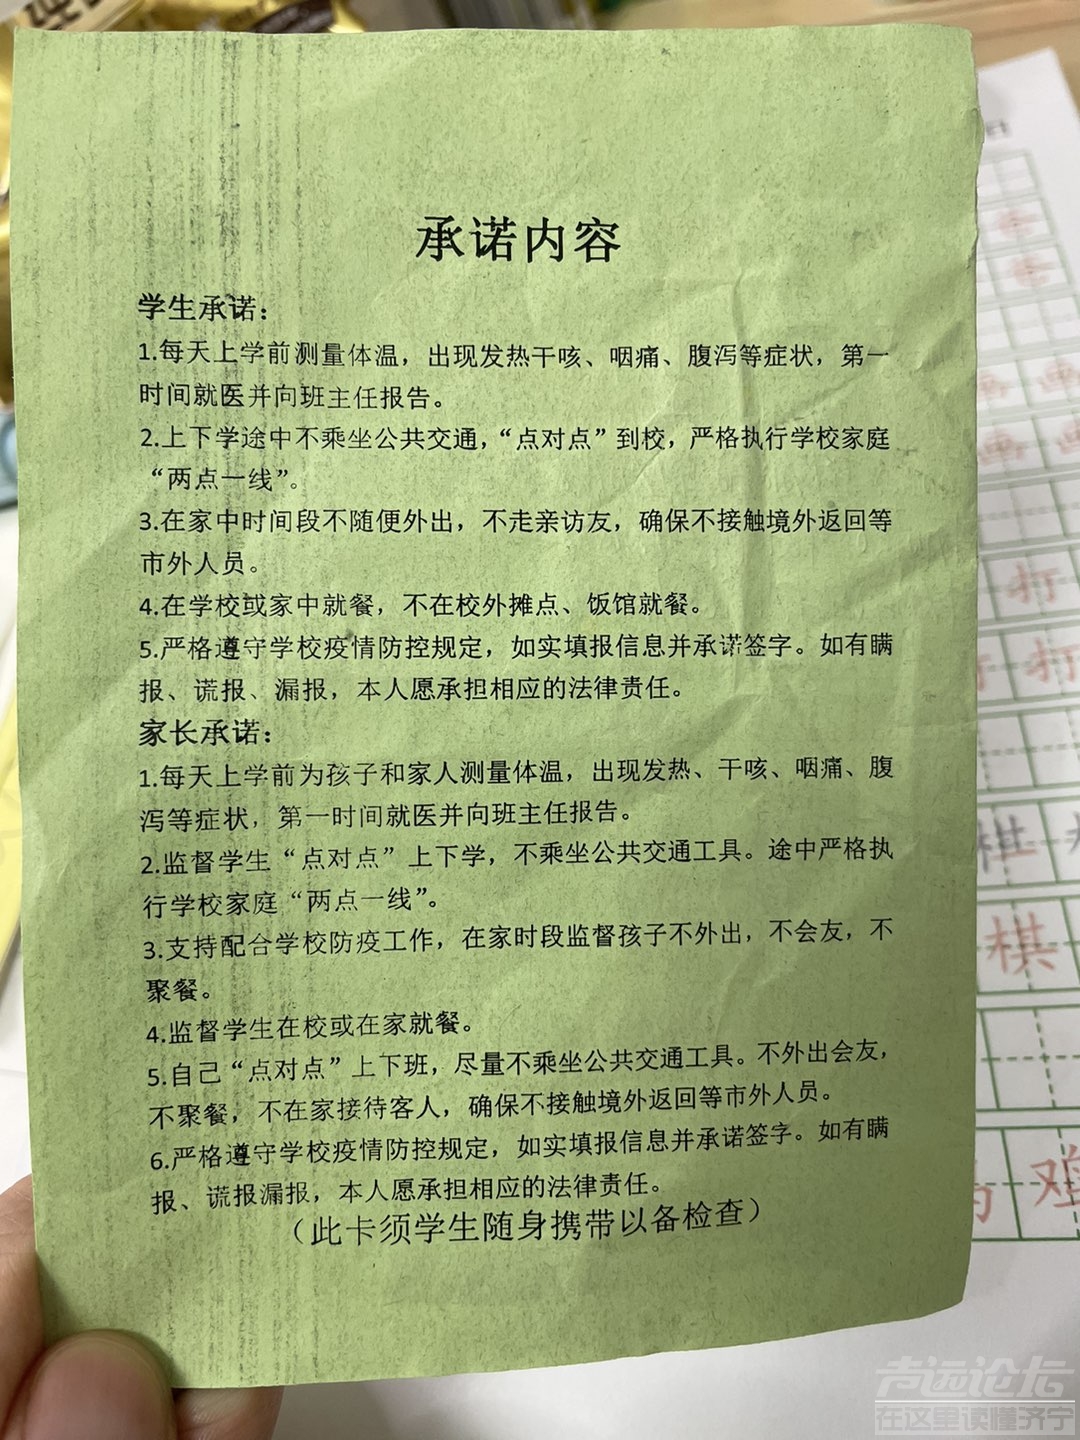 承诺内容
学生承诺：
1.每天上学前测量体温，出现发热干咳、咽痛、腹泻等症状，第一
时间就医并向班主任报告。
2.上下学途中不乘坐公共交通，“点对点”到校，严格执行学校家庭
“两点一线”。
3.在家中时间段不随便外出，不走亲访友，确保不接触境外返回等
市外人员。
4.在学校或家中就餐，不在校外摊点、饭馆就餐。
5.严格遵守学校疫情防控规定，如实填报信息并承诺签字。如有瞒
报、谎报、漏报，本人愿承担相应的法律责任。
家长承诺：
1.每天上学前为孩子和家人测量体温，出现发热、干咳、咽痛、腹
泻等症状，第一时间就医并向班主任报告。
2.监督学生“点对点”上下学，不乘坐公共交通工具。途中严格执
行学校家庭“两点一线”。
3.支持配合学校防疫工作，在家时段监督孩子不外出，不会友，不
聚餐。
4.监督学生在校或在家就餐。
5.自己“点对点”上下班，尽量不乘坐公共交通工具。不外出会友，
不聚餐，不在家接待客人，确保不接触境外返回等市外人员。
6.严格遵守学校疫情防控规定，如实填报信息并承诺签字。如有瞒
报、谎报漏报，本人愿承担相应的法律责任。
（此卡须学生随身携带以备检查）
画
画
打
打
棋
棋
鸡
声远论坛
在这里读懂济宁